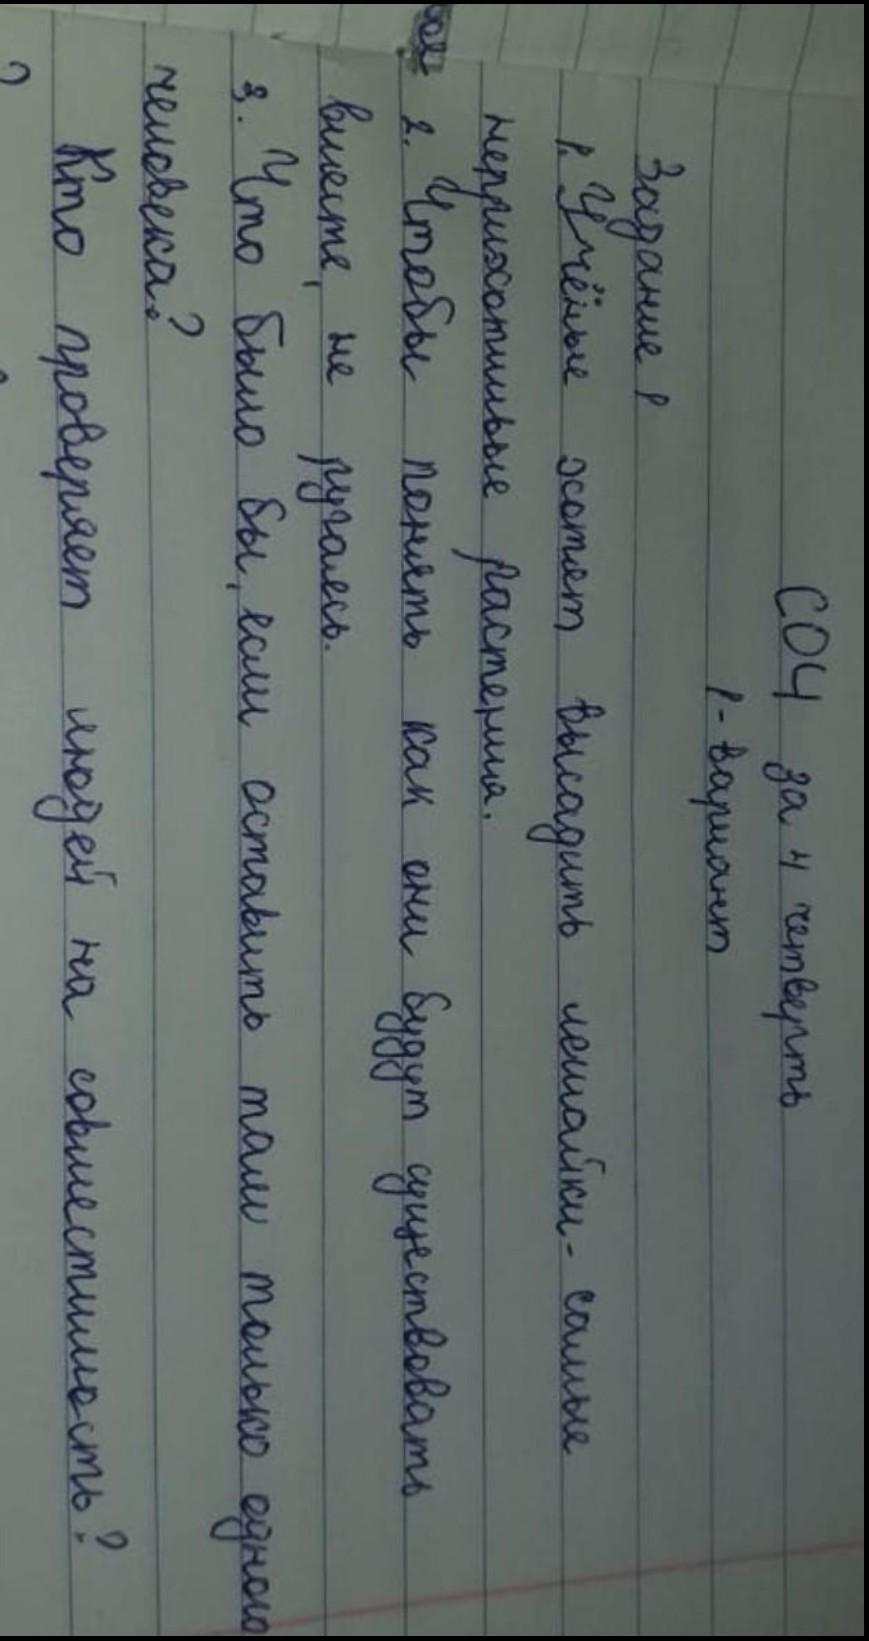 СОЧ за 4 четверть
1-вариант
Задание 1
1. Учёные хотят высадить лешайки- самые
неприхотливые растения.
2. Чтобы понять как они будут существовать
вместе, не ругаясь.
3. Что было бы, если оставить там только одного
человека?
Кто проверяет людей на совместимость?